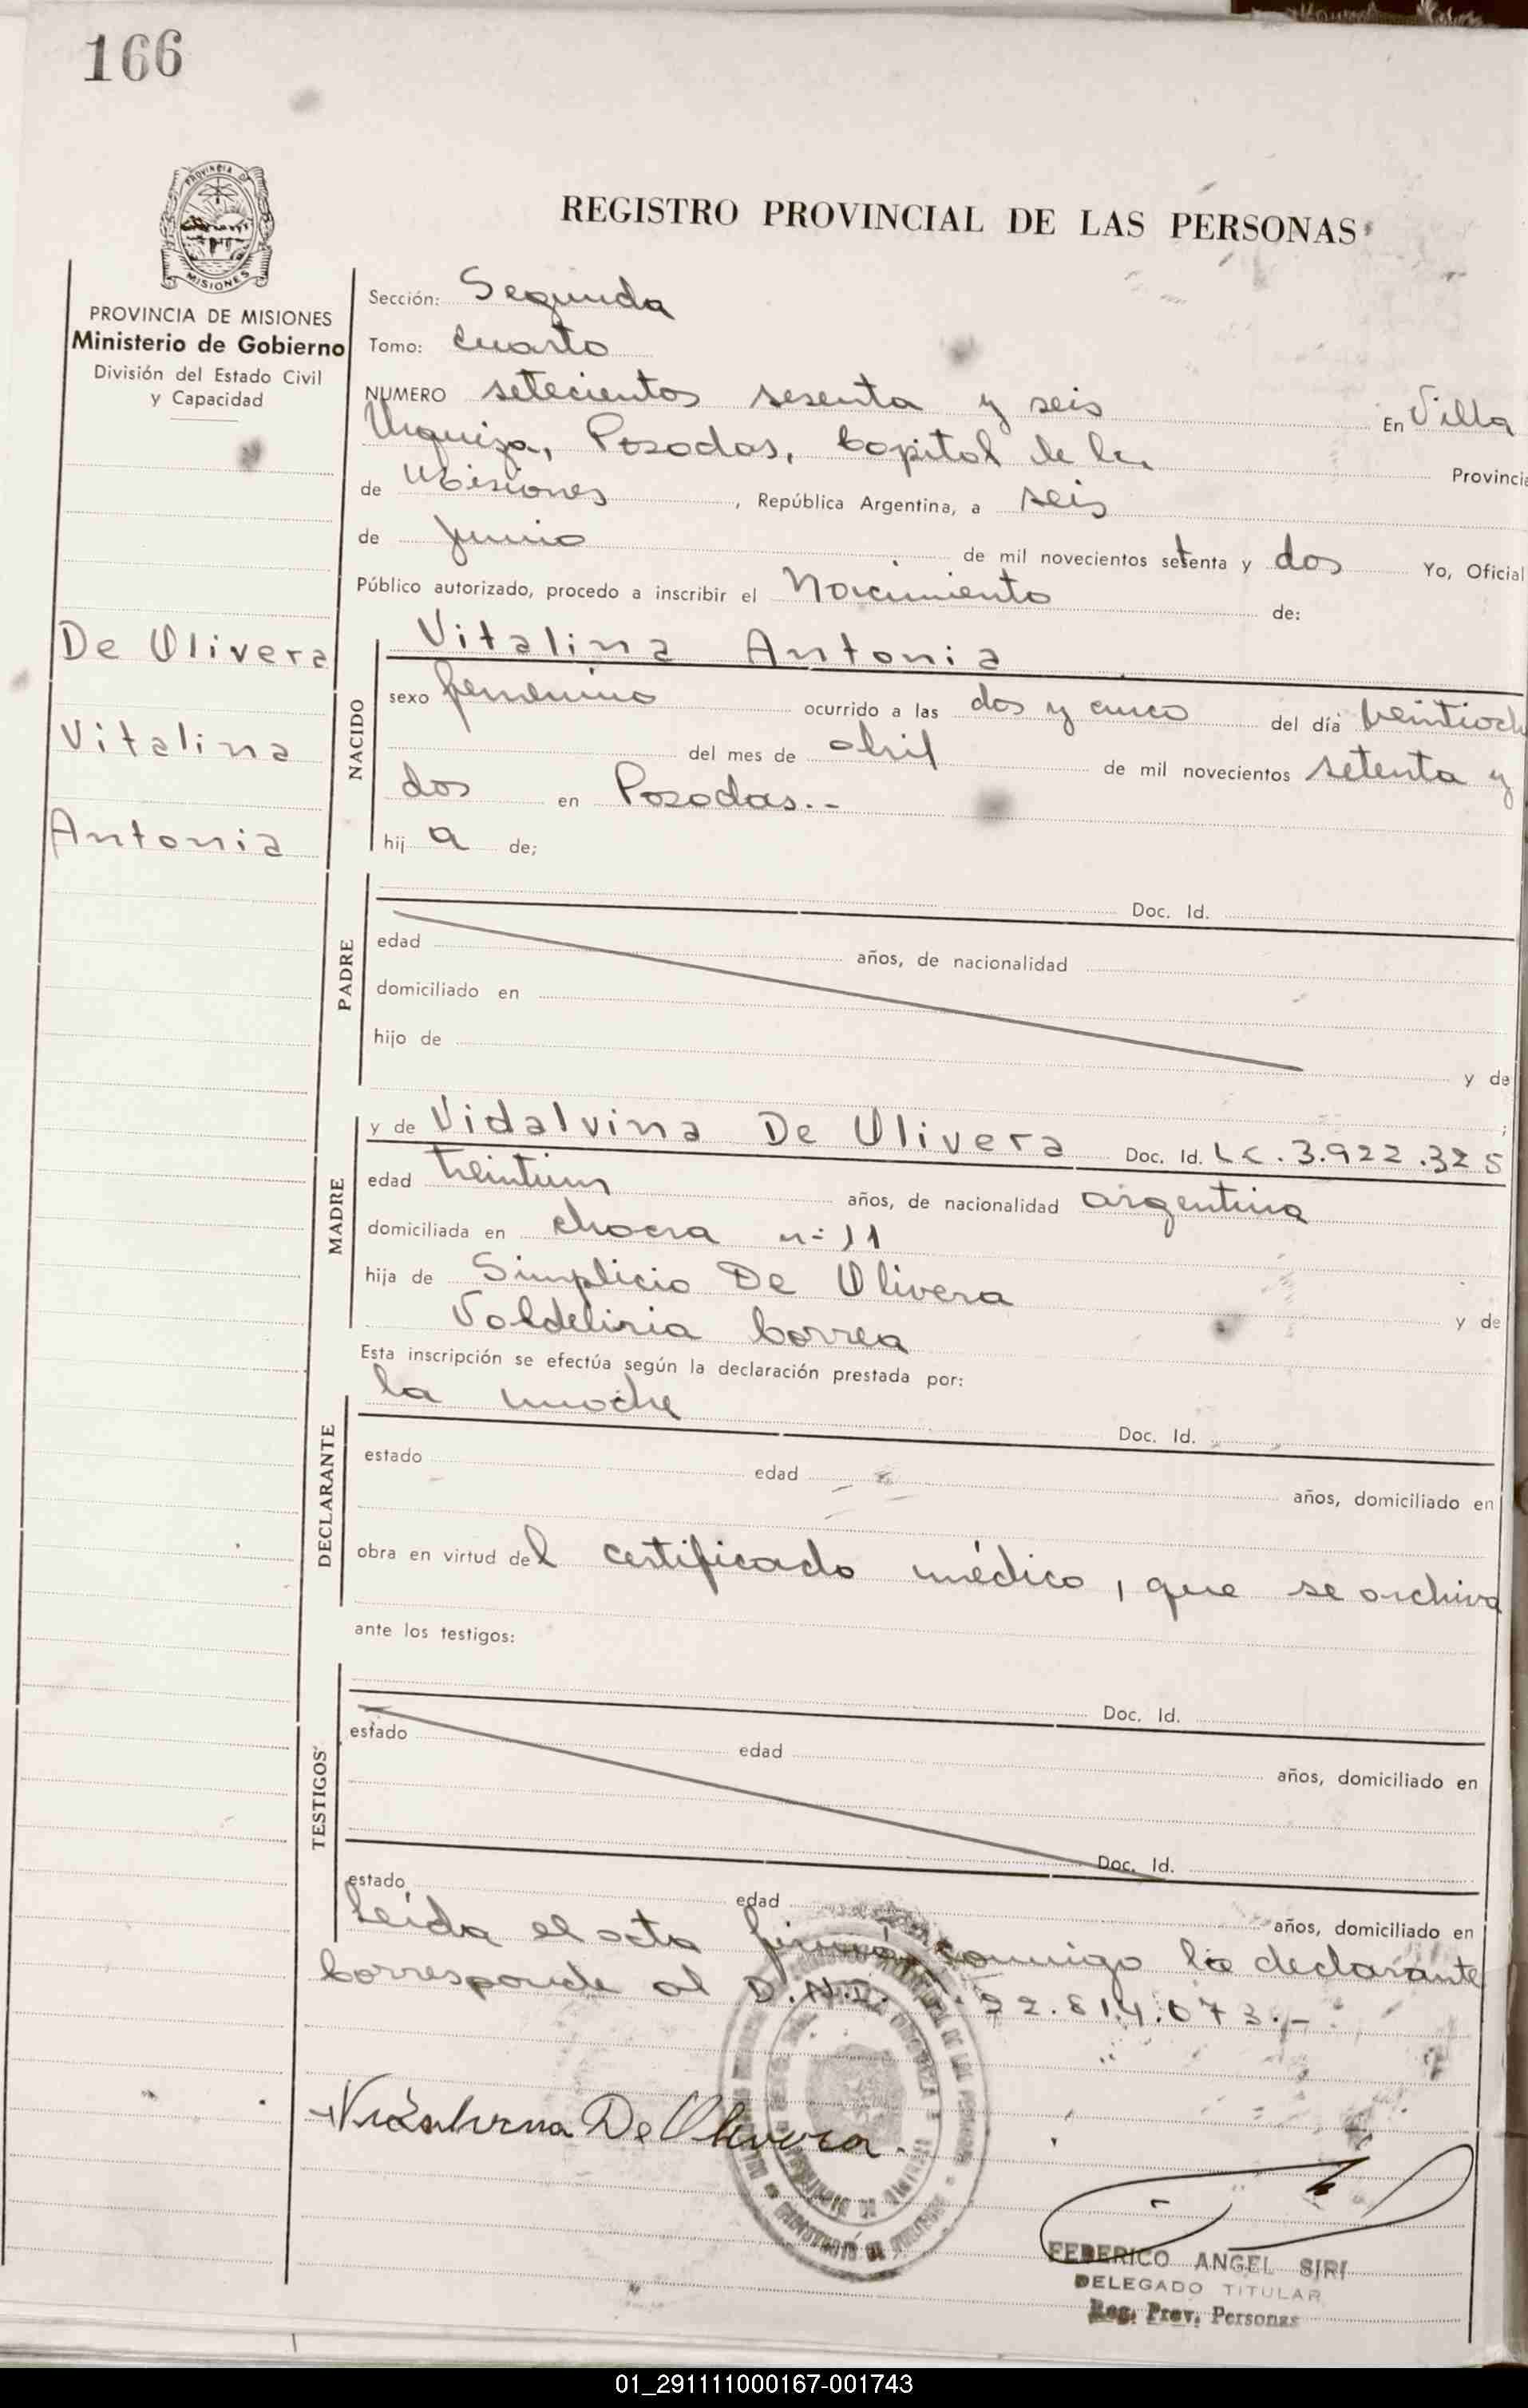 166
PROVINCIA DE
MISIONES
REGISTRO PROVINCIAL DE LAS PERSONAS
PROVINCIA DE MISIONES
Ministerio de Gobierno
División del Estado Civil
y Capacidad
De Olivera
Vitalina
Antonia
Sección: Segunda
Tomo: Cuarto
NUMERO setecientos sesenta y seis En Villa
Urquiza, Posadas, Capital de la Provincia
de Misiones, República Argentina, a seis
de junio de mil novecientos setenta y dos Yo, Oficial
Público autorizado, procedo a inscribir el Nacimiento de:
NACIDO
Vitalina Antonia
sexo femenino ocurrido a las dos y cinco del día veintioch
del mes de abril de mil novecientos setenta y
dos en Posadas.-
hij a de;
PADRE
Doc. Id.
edad años, de nacionalidad
domiciliado en
hijo de y de
MADRE
y de Vidalvina De Olivera Doc. Id. LC. 3.922.325
edad treintiun años, de nacionalidad argentina
domiciliada en chacra n: 11
hija de Simplicio De Olivera y de
Valdeliria Correa
Esta inscripción se efectúa según la declaración prestada por:
DECLARANTE
la madre Doc. Id.
estado edad años, domiciliado en
obra en virtud del certificado médico, que se archiva
ante los testigos:
TESTIGOS
Doc. Id.
estado edad años, domiciliado en
Doc. Id.
estado edad años, domiciliado en
Leída el acta firma conmigo la declarante
Corresponde al D.N.I. 22.814.073.-
De Olivera.
FEDERICO ANGEL SIRI
DELEGADO TITULAR
Reg. Prov. Personas
01_291111000167-001743